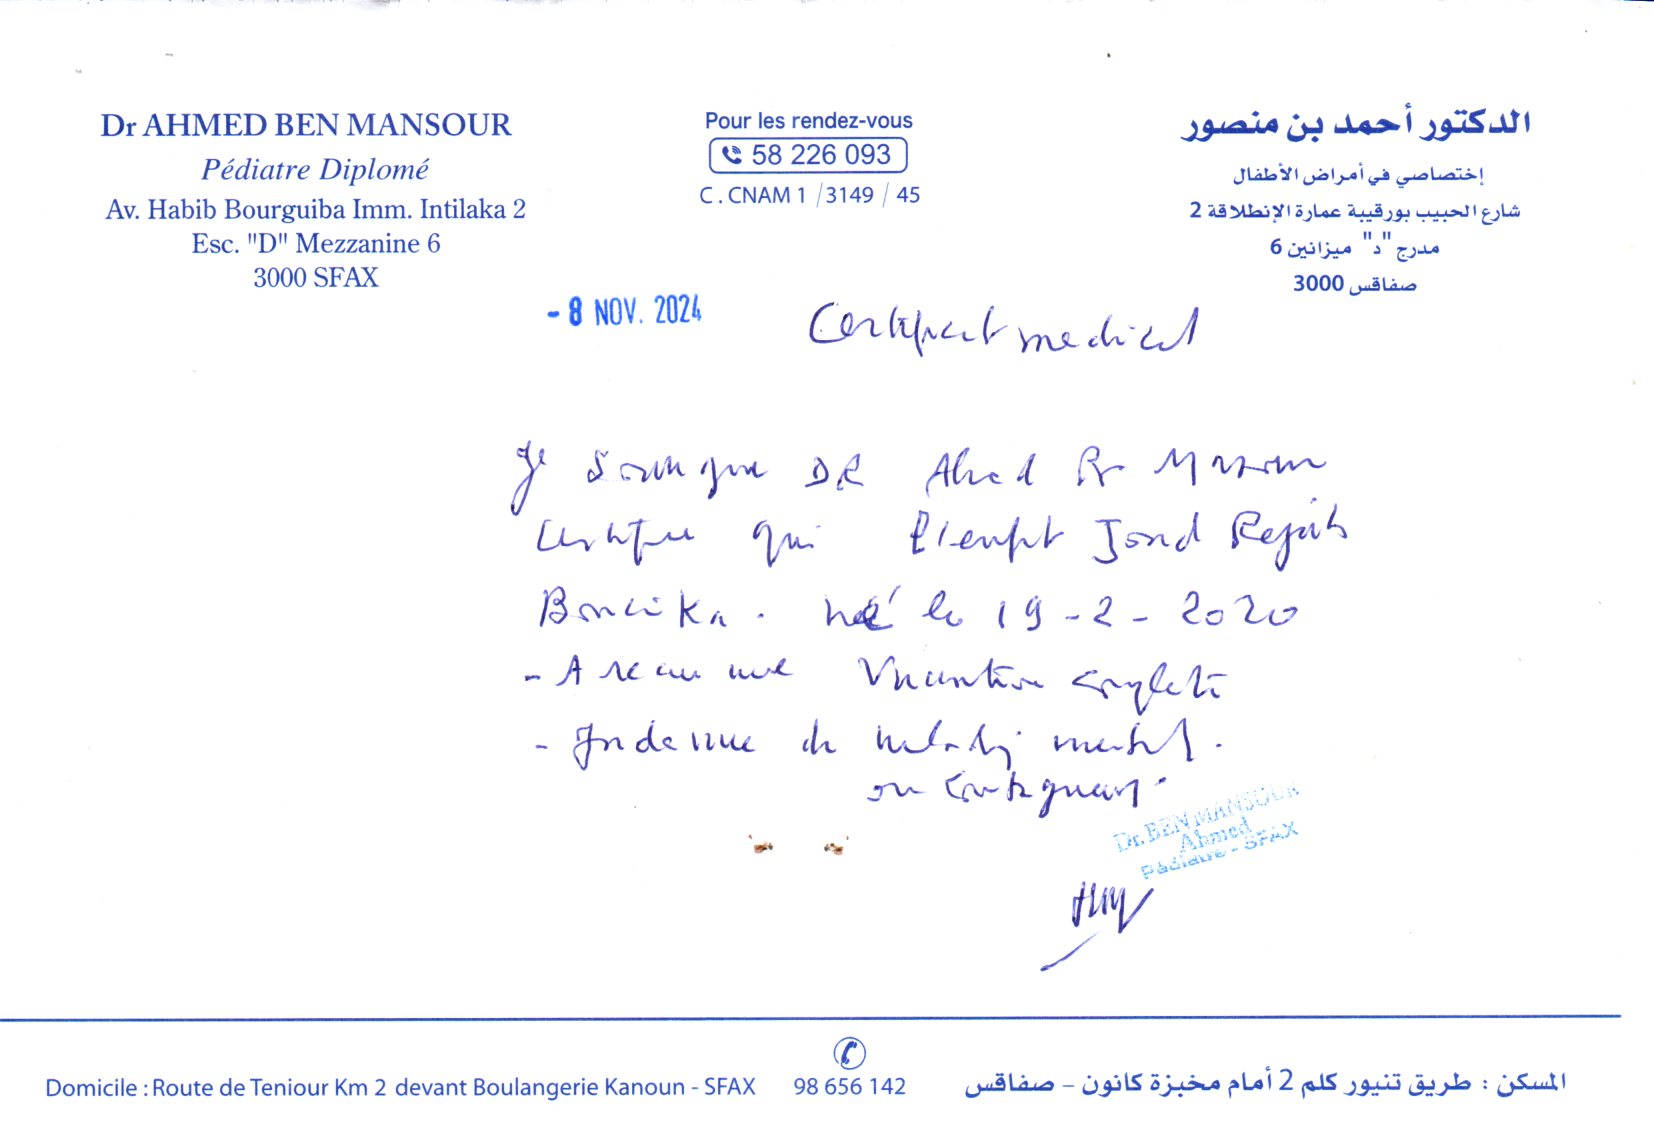 Dr AHMED BEN MANSOUR
Pédiatre Diplomé
Av. Habib Bourguiba Imm. Intilaka 2
Esc. "D" Mezzanine 6
3000 SFAX
Pour les rendez-vous
58 226 093
C . CNAM 1 / 3149 / 45
الدكتور أحمد بن منصور
إختصاصي في أمراض الأطفال
شارع الحبيب بورقيبة عمارة الإنطلاقة 2
مدرج "د" ميزانين 6
صفاقس 3000
- 8 NOV. 2024
Certificat medical
Je soussigné DR Ahmed Bn Mansour
Certifie que l'enfant Rejeb
né le 19-2-2020
- A reçu une Vaccination complète
- Indemne de maladies mental
ou contagieuse.
Dr. BEN MANSOUR
Ahmed
Pédiatre - SFAX
Domicile : Route de Teniour Km 2 devant Boulangerie Kanoun - SFAX
98 656 142
المسكن : طريق تنيور كلم 2 أمام مخبزة كانون – صفاقس